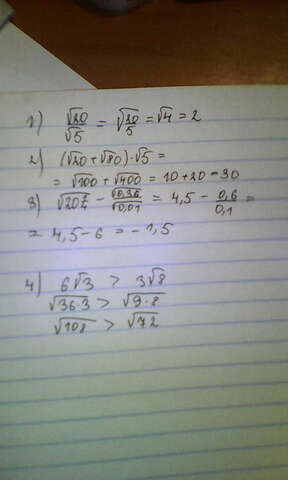 1) √20/√5 = √20/5 = √4 = 2
2) (√20 + √80) · √5 =
= √100 + √400 = 10 + 20 = 30
3) √20 1/4 − √0,36/√0,01 = 4,5 − 0,6/0,1 =
= 4,5 − 6 = − 1,5
4) 6√3 > 3√8
√36·3 > √9·8
√108 > √72